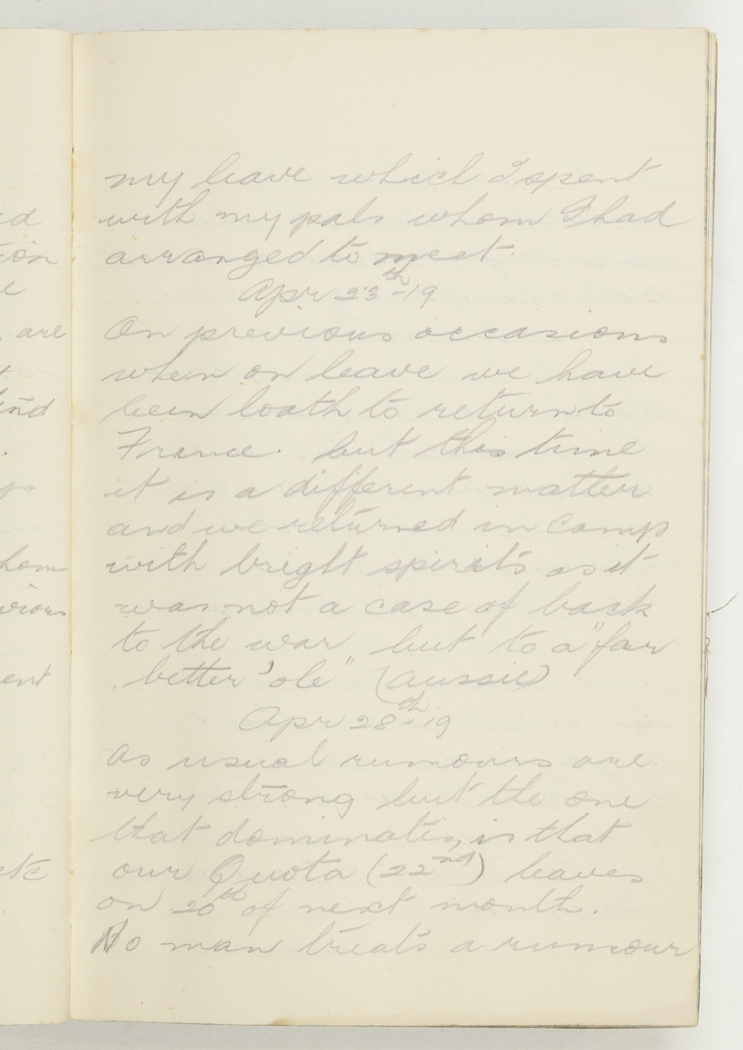 my leave which I spent
with my pals whom I had
arranged to meet.
Apr 23th-19
On previous occasions
when on leave we have
been loath to return to
France. but this time
it is a different matter
and we returned in Camp
with bright spirits as it
was not a case of back
to the war but to a "far
better 'ole" (Aussie)
Apr 28th-19
As usual rumours are
very strong but the one
that dominates, is that
our Quota (22nd) leaves
on 20th of next month.
No man treats a rumour
are
ent